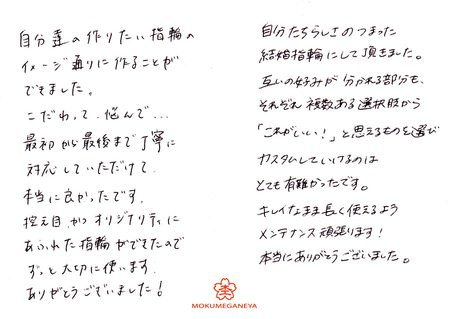 自分達の作りたい指輪の
イメージ通りに作ることが
できました。
こだわって、悩んで…
最初から最後まで丁寧に
対応していただけて
本当に良かったです。
控え目かつオリジナリティに
あふれた指輪ができたので
ずっと大切に使います。
ありがとうございました!
自分たちらしさのつまった
結婚指輪にして頂きました。
互いの好みが分かれる部分も、
それぞれ複数ある選択肢から
「これがいい!」と思えるものを選び
カスタムしていけるのは
とても有難かったです。
キレイなまま長く使えるよう
メンテナンス頑張ります!
本当にありがとうございました。
MOKUMEGANEYA